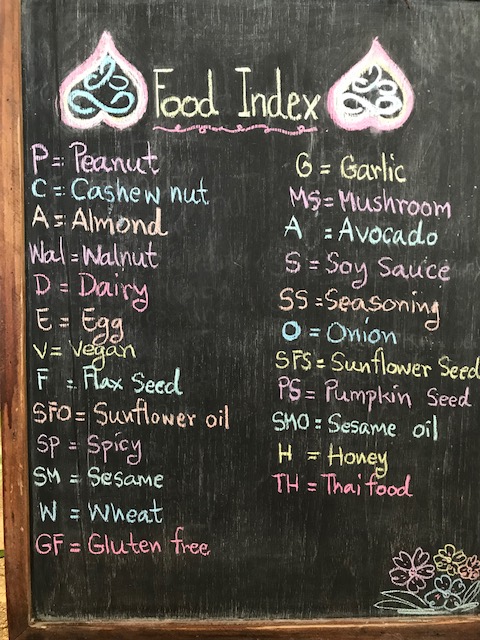 Food Index
P = Peanut
C = Cashew nut
A = Almond
Wal = Walnut
D = Dairy
E = Egg
V = Vegan
F = Flax Seed
SFO = Sunflower oil
SP = Spicy
SM = Sesame
W = Wheat
GF = Gluten free
G = Garlic
MS = Mushroom
A = Avocado
S = Soy Sauce
SS = Seasoning
O = Onion
SFS = Sunflower Seed
PS = Pumpkin Seed
SMO = Sesame oil
H = Honey
TH = Thai food